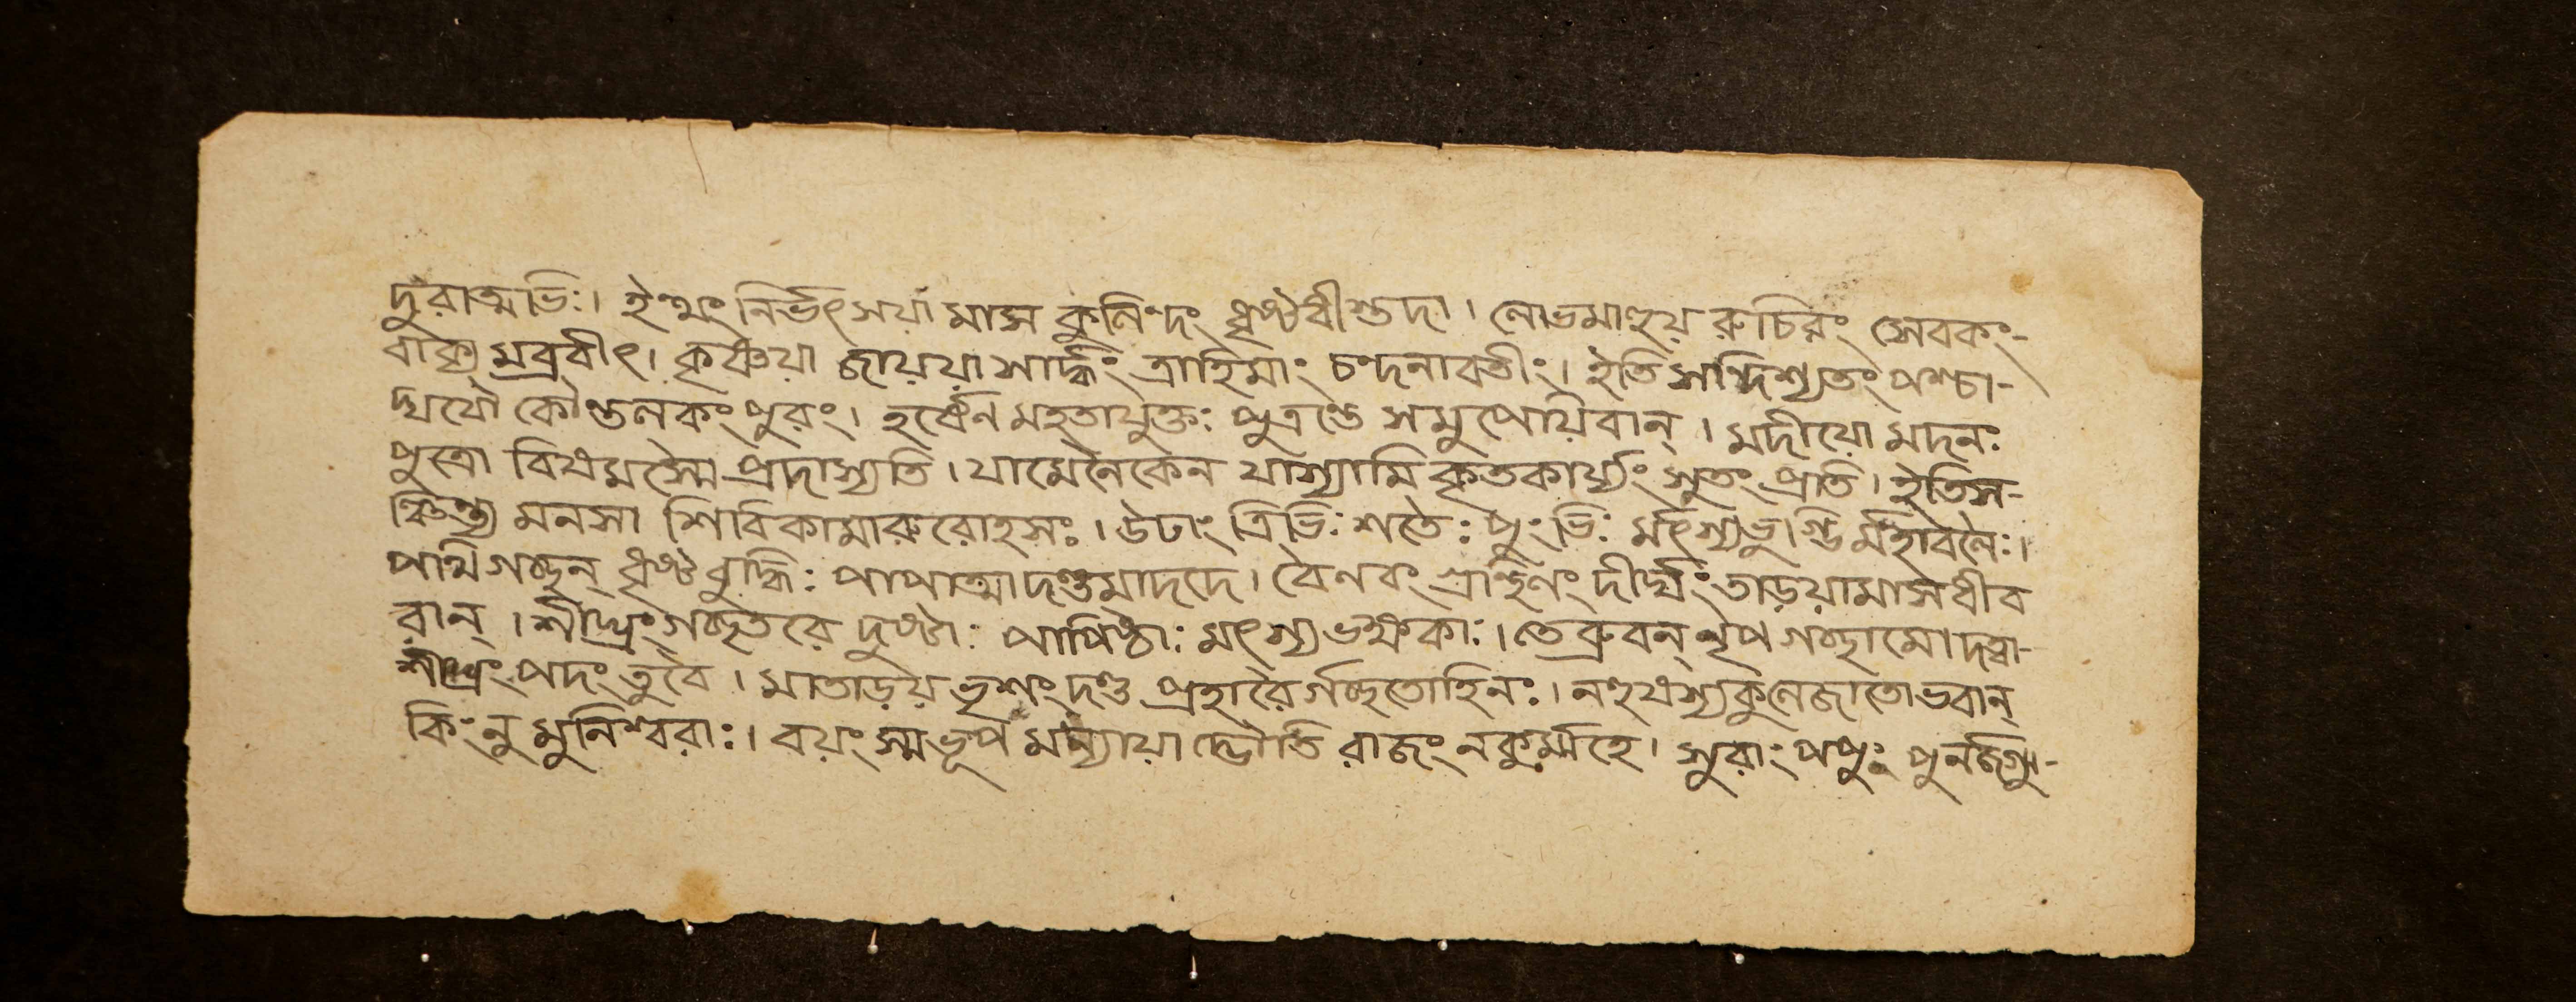 দুরাত্মভিঃ। ইত্থং নির্ভৎসয়ামাস কুলিন্দং ধৃষ্টধীস্তদা। লোভমাহূয় রুচিরং সেবকং-
বাক্য মব্রবীৎ। কৃষ্ণয়া জায়য়া সার্দ্ধং ত্রাহিমাং চন্দনাবতীং। ইতি সন্দিশ্যতং পশ্চা-
দ্যযৌ কৌণ্ডলকং পুরং। হর্ষেণ মহতাযুক্তঃ পুত্রস্তে সমুপেয়িবান্। মদীয়ো মদনঃ
পুত্রো বিষমস্মৈ প্রদাস্যতি। যামেনৈকেন যাস্যামি কৃতকার্য্যং সুতং প্রতি। ইতিস-
ঞ্চিন্ত্য মনসা শিবিকামারুরোহসঃ। উঢাং ত্রিভিঃ শতৈঃ পুংভিঃ র্মৎস্যভুগ্ভি র্মহাবলৈঃ।
পথি গচ্ছন্ ধৃষ্টবুদ্ধিঃ পাপাত্মা দণ্ডমাদদে। বৈণবং গ্রন্থিনং দীর্ঘং তাড়য়ামাস ধীব
রান্। শীঘ্রং গচ্ছতরে দুষ্টাঃ পাপিষ্ঠাঃ মৎস্য ভক্ষকাঃ। তে ব্রুবন্ নৃপ গচ্ছামো দত্ত্বা-
শীঘ্রং পদং তুবৈ। মাতাড়য় ভৃশং দণ্ড প্রহারৈ র্গচ্ছতোহিনঃ। নহুষস্য কুলেজাতো ভবান্
কিং নু মুনিশ্বরাঃ। বয়ং স্ম ভূপ মন্যায়া দ্ভৌতি রাজং নকুর্ম্মহে। সুরাং পপুঃ পুনর্জগ্মু-